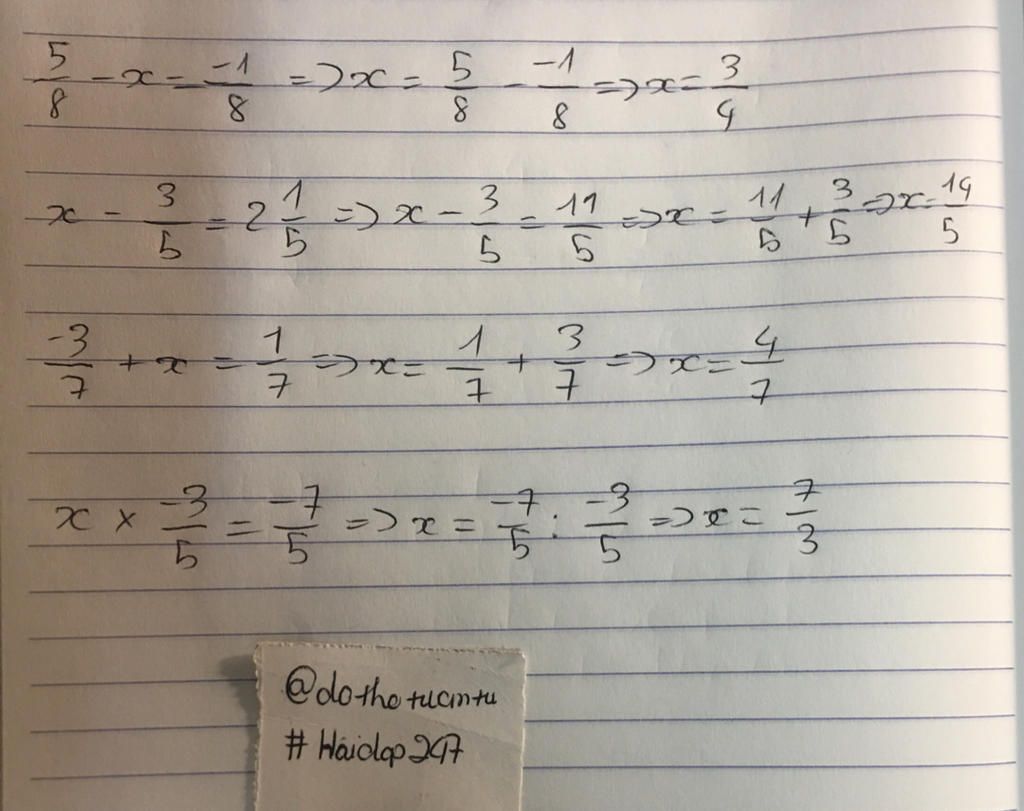 5/8 - x = -1/8 => x = 5/8 - -1/8 => x = 3/4
x - 3/5 = 2 1/5 => x - 3/5 = 11/5 => x = 11/5 + 3/5 => x = 14/5
-3/7 + x = 1/7 => x = 1/7 + 3/7 => x = 4/7
x × -3/5 = -7/5 => x = -7/5 : -3/5 => x = 7/3
@dothetuantu
# Hoidap247